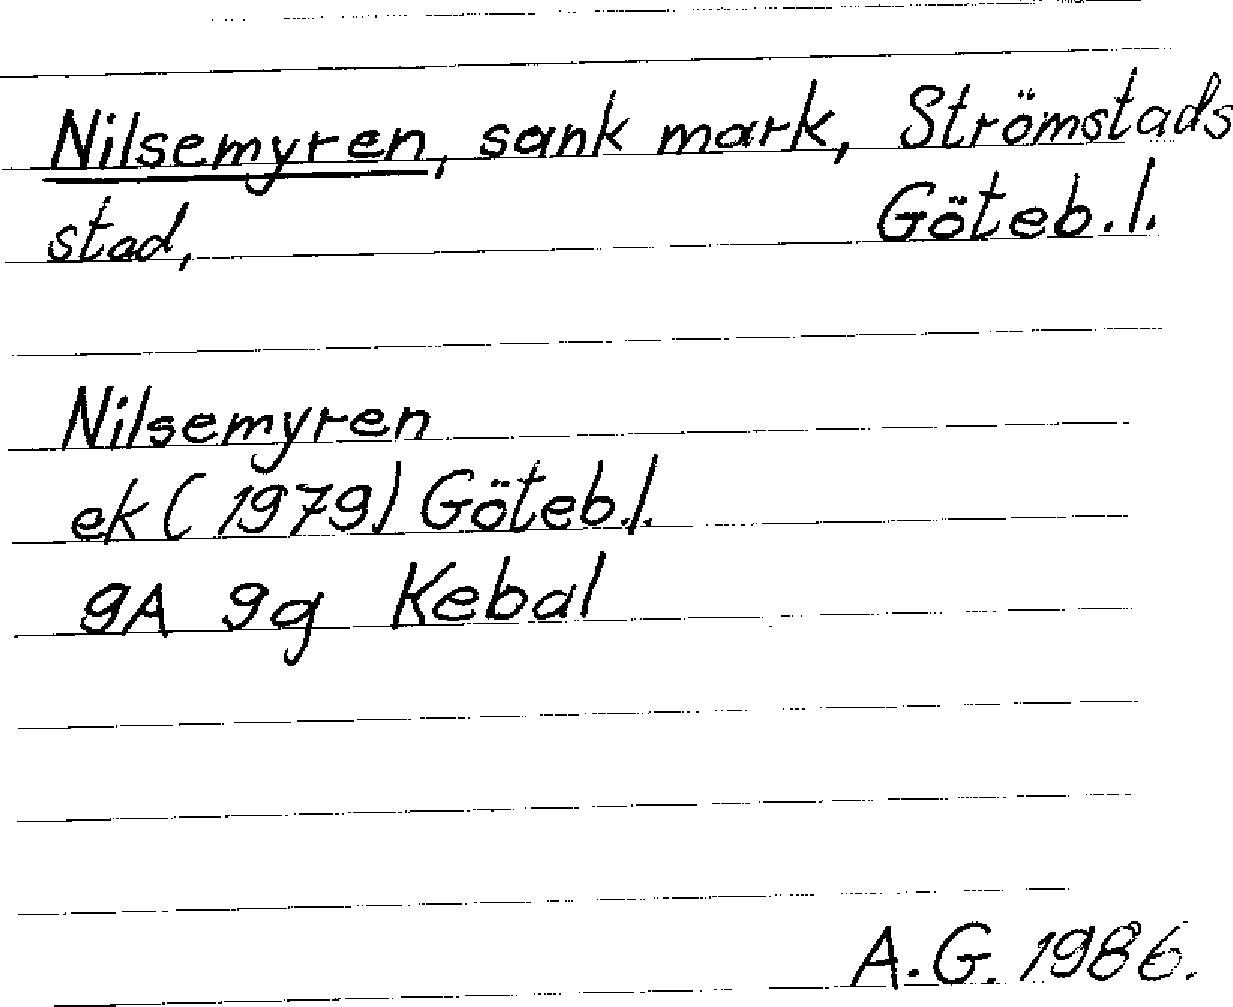 Nilsemyren, sank mark, Strömstads
stad, Göteb.l.
Nilsemyren
ek (1979) Göteb.l.
9A 9g Kebal
A.G. 1986.